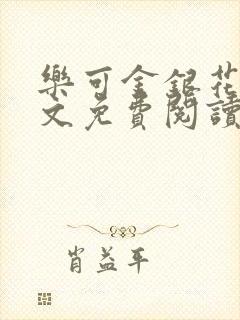 樂可金銀花
文免費閱讀
肖益平